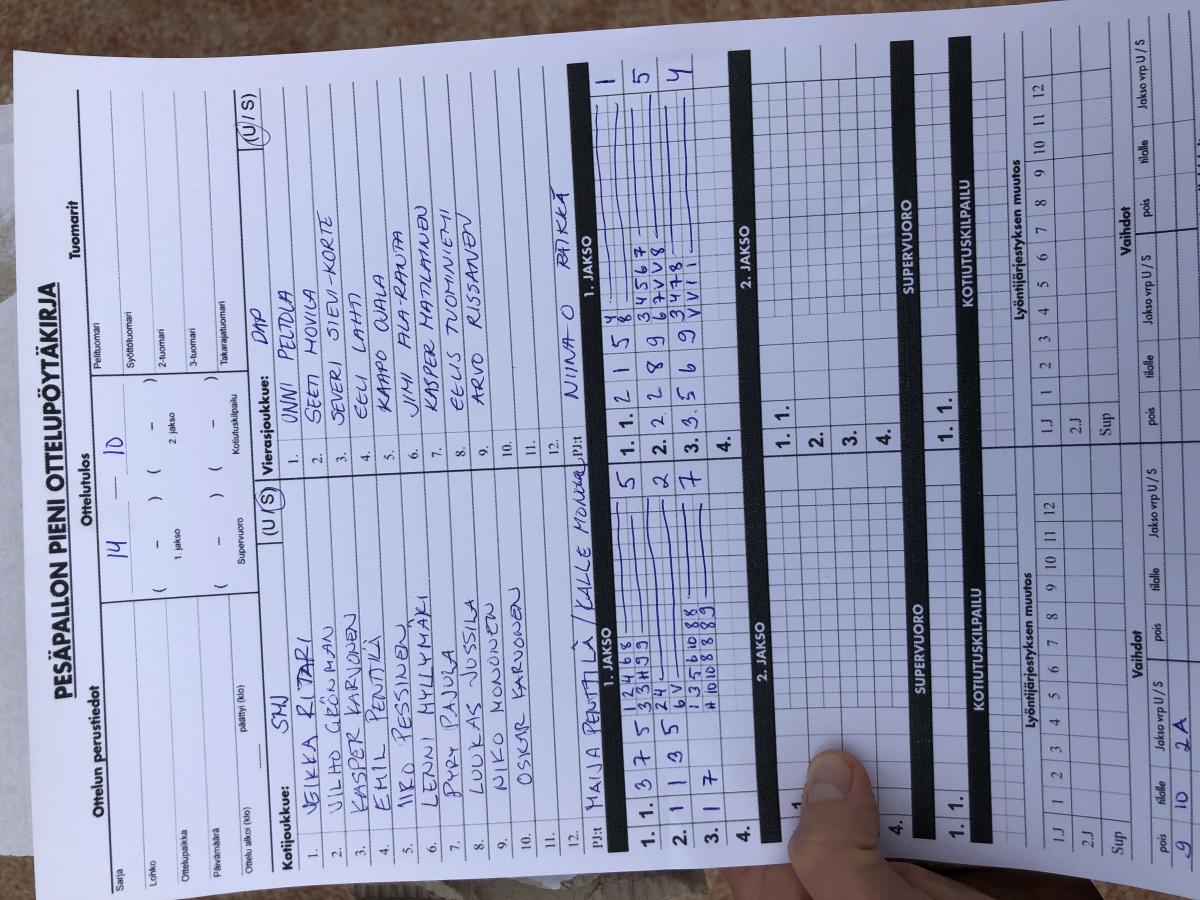 PESÄPALLON PIENI OTTELUPÖYTÄKIRJA
Ottelun perustiedot
Ottelutulos
Tuomarit
Sarja
14 — 10
Pelituomari
Lohko
( – ) ( – )
Syöttötuomari
Ottelupaikka
1. jakso 2. jakso
2-tuomari
Päivämäärä
( – ) ( – )
3-tuomari
Ottelu alkoi (klo) päättyi (klo)
Supervuoro Kotiutuskilpailu
Takarajatuomari
Kotijoukkue: SMJ (U / S)
Vierasjoukkue: DAP (U / S)
1. VEIKKA RITARI
1. ONNI PELTOLA
2. VILHO GRÖNMAN
2. SEETI MOVILA
3. KASPER KARVONEN
3. SEVERI SIEVI-KORTE
4. EMIL PENTTILÄ
4. EELI LAHTI
5. IIRO PESSINEN
5. KAAPO OJALA
6. LENNI MYLLYMÄKI
6. JIMI ALA-RANTA
7. PYRY PAJULA
7. KASPER MATILAINEN
8. LUUKAS JUSSILA
8. EELIS TUOMINIEMI
9. NIKO MONONEN
9. ARVO RISSANEN
10. OSKAR KARVONEN
10.
11.
11.
12.
12.
PJ:t MAIJA PENTTILÄ / KALLE MONONEN
PJ:t NIINA O RATKKÄ
1. JAKSO
1. JAKSO
1. 1. 3 7 5 1 2 4 6 8 5
3 3 H 9 9
1. 1. 2 1 5 4 1
8
2. 1 1 3 5 2 4 2
6 V
2. 2 2 8 9 3 4 5 6 7 5
6 7 V V 8
3. 1 7 1 3 5 6 10 8 8 7
H 10 8 8 8 8 9
3. 3. 5 6 9 3 4 7 8 4
V V 1 1
4.
4.
2. JAKSO
2. JAKSO
1. 1.
2.
3.
4.
4.
SUPERVUORO
SUPERVUORO
1. 1.
1. 1.
KOTIUTUSKILPAILU
KOTIUTUSKILPAILU
Lyöntijärjestyksen muutos
Lyöntijärjestyksen muutos
1.J 1 2 3 4 5 6 7 8 9 10 11 12
1.J 1 2 3 4 5 6 7 8 9 10 11 12
2.J
2.J
Sup
Sup
Vaihdot
Vaihdot
pois tilalle Jakso vrp U / S pois tilalle Jakso vrp U / S
pois tilalle Jakso vrp U / S pois tilalle Jakso vrp U / S
9 10 2A